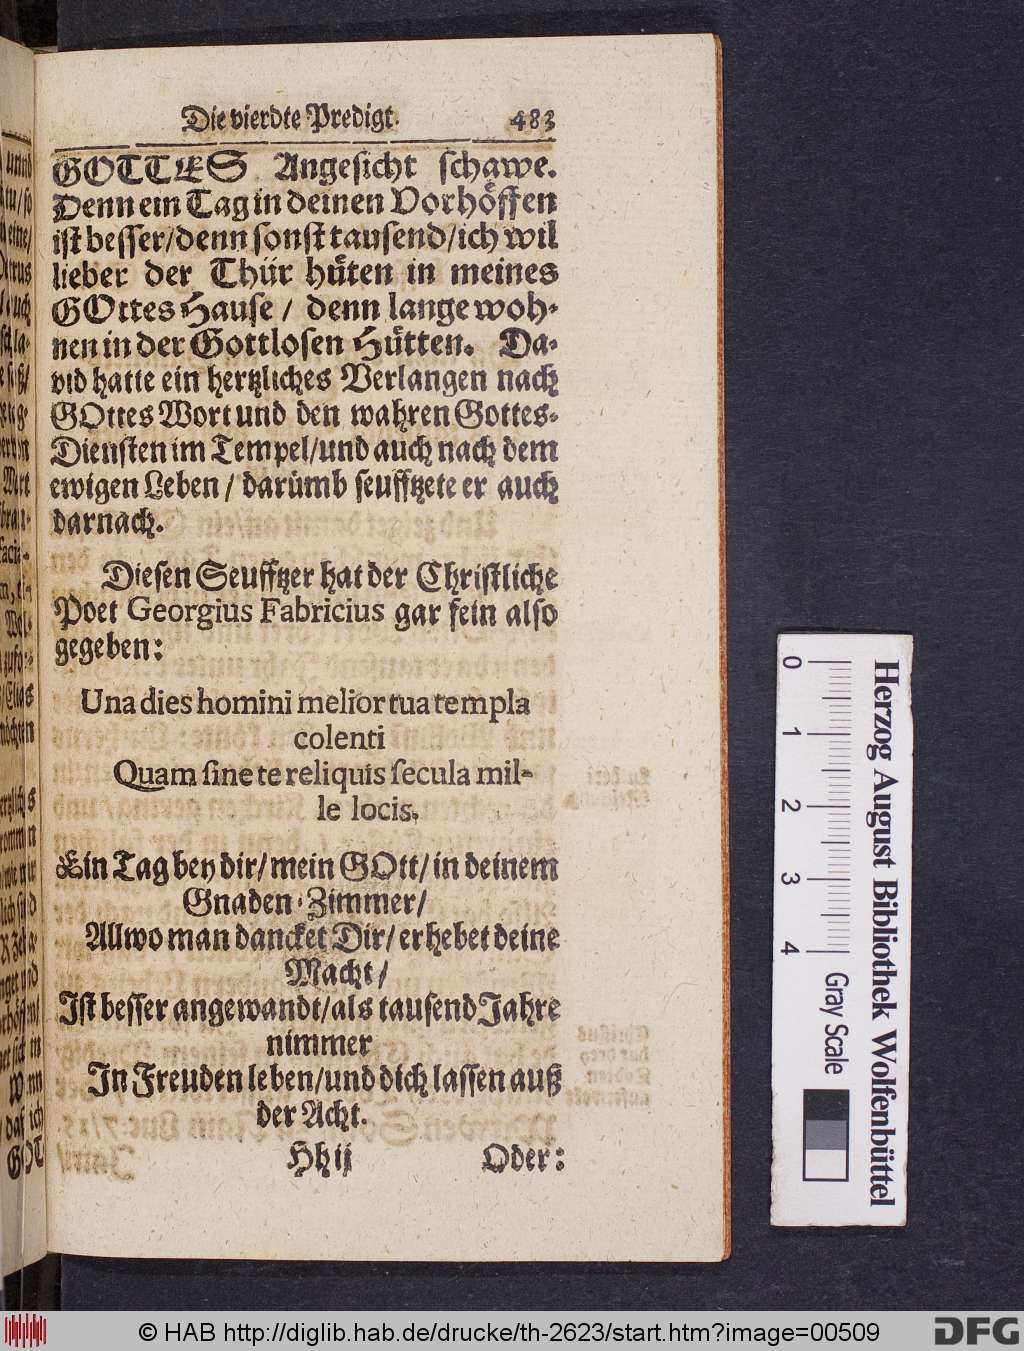 Die vierdte Predigt. 483
GOTTES Angesicht schawe.
Denn ein Tag in deinen Vorhöffen
ist besser/denn sonst tausend/ich wil
lieber der Thür hüten in meines
GOttes Hause / denn lange woh-
nen in der Gottlosen Hütten. Da-
vid hatte ein hertzliches Verlangen nach
GOttes Wort und den wahren Gottes-
Diensten im Tempel/und auch nach dem
ewigen Leben / darümb seufftzete er auch
darnach.
Diesen Seufftzer hat der Christliche
Poet Georgius Fabricius gar fein also
gegeben:
Una dies homini melior tua templa
colenti
Quam sine te reliquis secula mil-
le locis.
Ein Tag bey dir/mein GOtt/in deinem
Gnaden-Zimmer/
Allwo man dancket Dir/erhebet deine
Macht/
Ist besser angewandt/als tausend Jahre
nimmer
In Freuden leben/und dich lassen auß
der Acht.
Hh ij Oder:
0 1 2 3 4
Herzog August Bibliothek Wolfenbüttel
Gray Scale
© HAB http://diglib.hab.de/drucke/th-2623/start.htm?image=00509
DFG